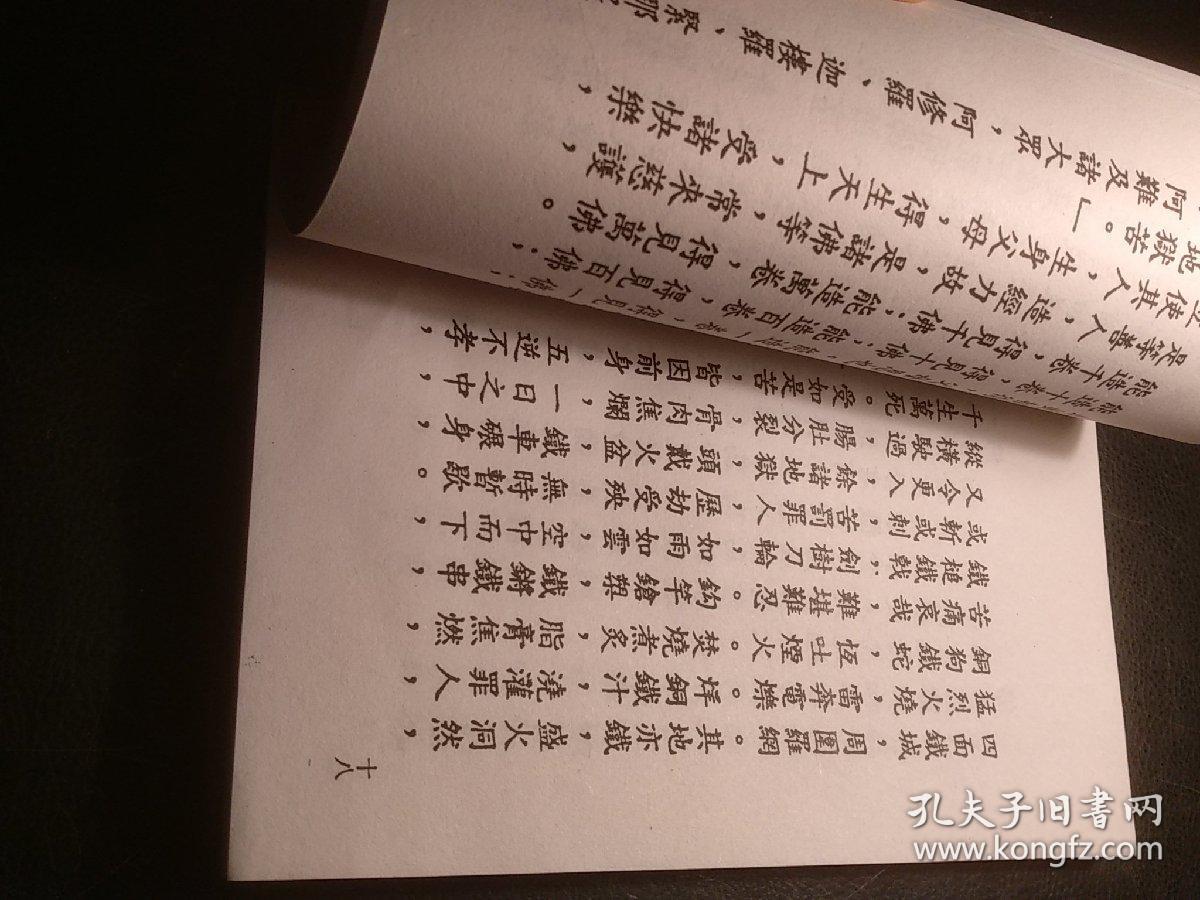 四面鐵城，周圍羅網。其地亦鐵，盛火洞然，
猛烈火燒，雷奔電爍。烊銅鐵汁，澆灌罪人，
銅狗鐵蛇，恆吐煙火。焚燒煮炙，脂膏焦燃，
苦痛哀哉，難堪難忍。鈎竿鎗槊，鐵鏘鐵串，
鐵槌鐵戟，劍樹刀輪，如雨如雲，空中而下，
或斬或刺，苦罰罪人，歷劫受殃，無時暫歇。
又令更入，餘諸地獄，頭戴火盆，鐵車碾身，
縱橫駛過，腸肚分裂，骨肉焦爛，一日之中，
千生萬死。受如是苦，皆因前身，五逆不孝，
十八
能造十卷，得見十佛；能造百卷，得見百佛；
能造千卷，得見千佛；能造萬卷，得見萬佛。
是等善人，造經力故，是諸佛等，常來慈護，
使其人，生身父母，得生天上，受諸快樂，
地獄苦。」
阿難及諸大眾，阿修羅、迦樓羅、緊那
孔夫子旧书网
www.kongfz.com